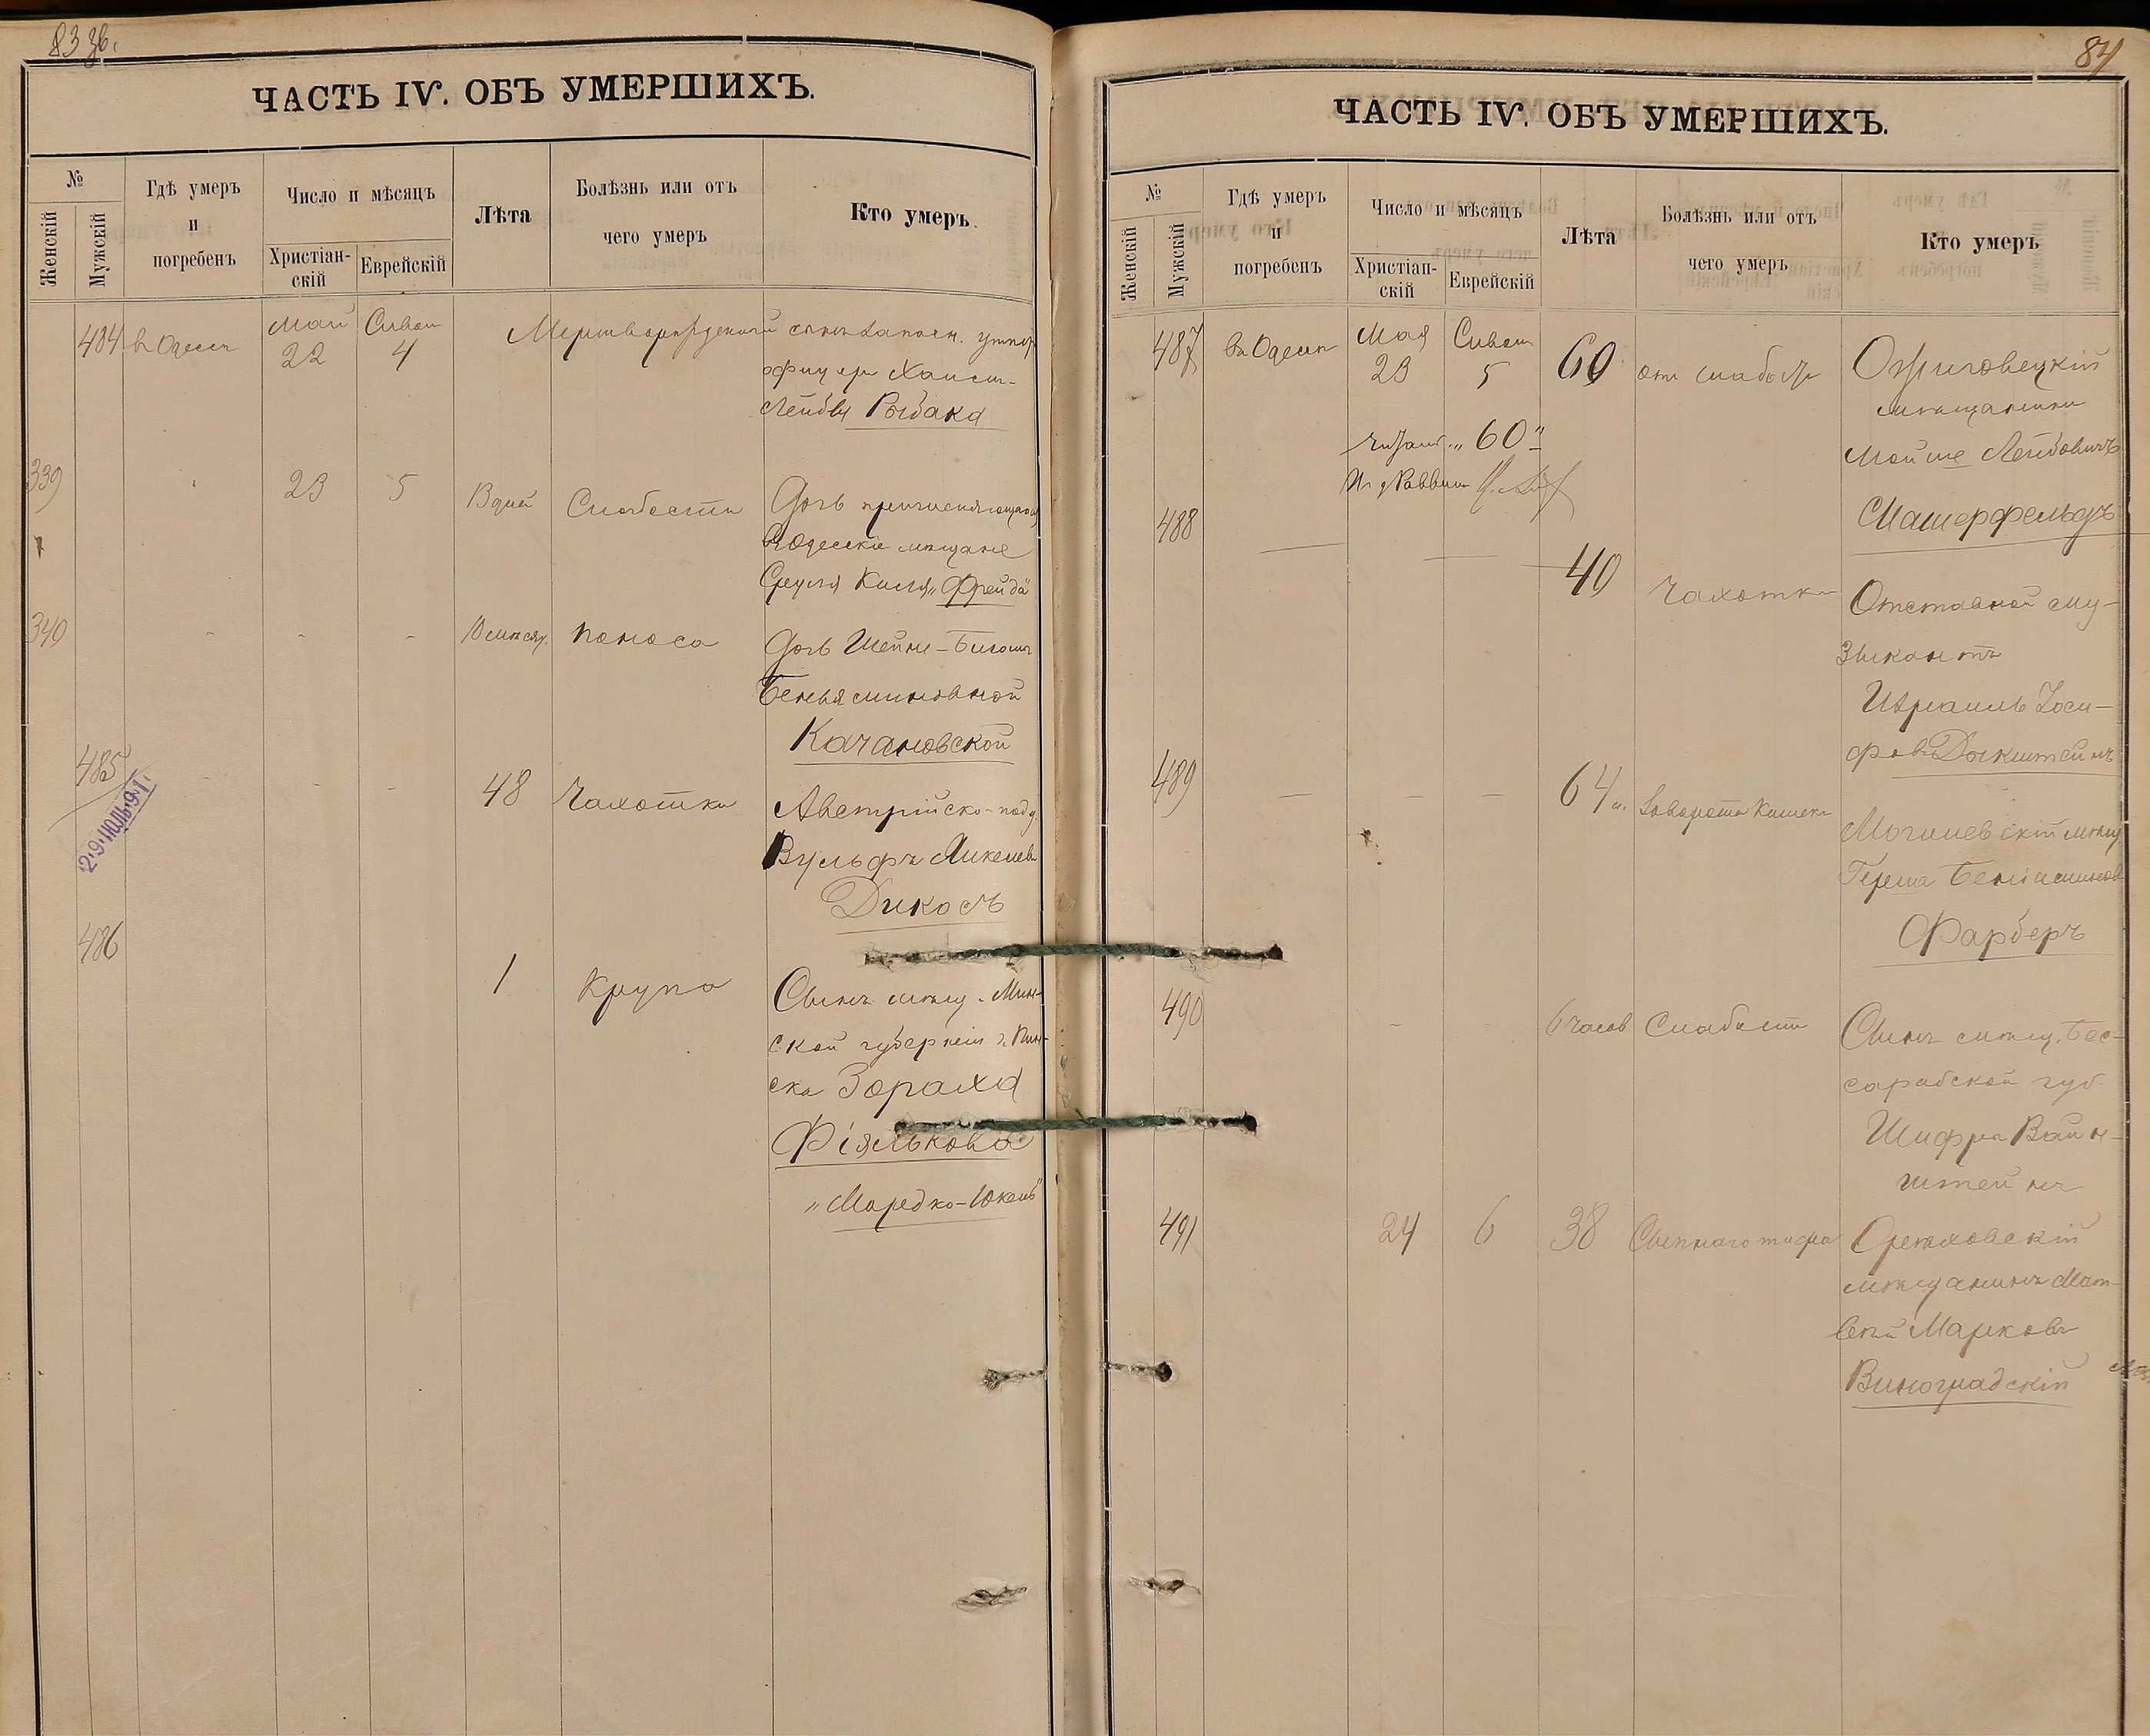 83 зв.
ЧАСТЬ IV. ОБЪ УМЕРШИХЪ.
№
Женскій
Мужскій
Гдѣ умеръ
и
погребенъ
Число и мѣсяцъ
Христіан-
скій
Еврейскій
Лѣта
Болѣзнь или отъ
чего умеръ
Кто умеръ.
484 въ Одессѣ Май 22 Сиван 4 Мертворожденный сынъ запасн. унтер
офицера Хаим-
Лейбы Рыбака
339 23 5 3 дней Слабости Дочь причисляющагося
въ Одесскіе мѣщане
Сруля Кисля „Фрейда"
340 - - - 10 мѣсяц. поноса Дочь Шейне-
Беньяминовной
Качановской
485 - - - 48 Чахотки Австрійско-под.
Вульфъ Янкелевъ
Дикосъ
29 ИЮЛЬ 91
486 1 Крупа Сынъ мѣщ. Мин-
ской губерніи г. Пин-
ска Зораха
Фіялькова
„Мордко-Юкель"
84
ЧАСТЬ IV. ОБЪ УМЕРШИХЪ.
№
Женскій
Мужскій
Гдѣ умеръ
и
погребенъ
Число и мѣсяцъ
Христіан-
скій
Еврейскій
Лѣта
Болѣзнь или отъ
чего умеръ
Кто умеръ
487 въ Одессѣ Мая 23 Сиван 5 60 отъ слабости Ожиговецкій
мѣщанинъ
Мойше Лейбовичъ
Машерфельдъ
читать „60"
И. д. Раввина
488 — — — 40 Чахотки Отставной му-
зыкантъ
Израиль Іоси-
фовъ Докштейнъ
489 — — — 64 л. Заворота кишекъ Могилевскій мѣщ.
Герша Беніаминовъ
Фарберъ
490 - - 6 часов Слабости Сынъ мѣщ. Бес-
сарабской губ.
Шифра Вайн-
штейнъ
491 24 6 38 Сыпнаго тифа Орѣховскій
мѣщанинъ Мат-
вѣй Марковъ
Виноградскій